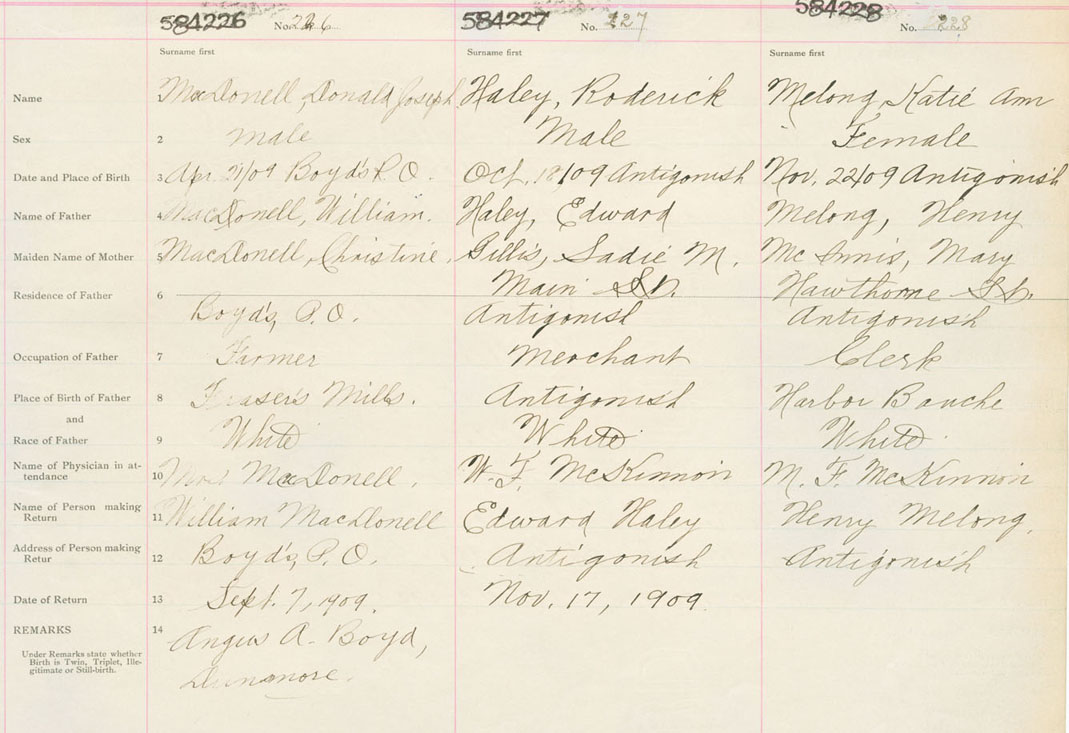 584226 No. 226 584227 No. 227 584228 No. 228
Surname first Surname first Surname first
Name MacDonell, Donald Joseph Haley, Roderick Melong, Katie Ann
Sex 2 male Male Female
Date and Place of Birth 3 Apr. 21/09 Boyd's P.O. Oct. 18/09 Antigonish Nov. 22/09 Antigonish
Name of Father 4 MacDonell, William. Haley, Edward Melong, Henry
Maiden Name of Mother 5 MacDonell, Christine, Gillis, Sadie M. Mc Innis, Mary
Main St. Hawthorne St.
Residence of Father 6 Boyd's, P.O. Antigonish Antigonish
Occupation of Father 7 Farmer Merchant Clerk
Place of Birth of Father 8 Fraser's Mills. Antigonish Harbor Bauche
and
Race of Father 9 White White White
Name of Physician in at-
tendance 10 MacDonell. W. F. McKinnon M. F. McKinnon
Name of Person making
Return 11 William MacDonell Edward Haley Henry Melong,
Address of Person making
Retur 12 Boyd's, P.O. Antigonish Antigonish
Date of Return 13 Sept. 7, 1909. Nov. 17, 1909.
REMARKS 14 Angus A. Boyd,
Under Remarks state whether
Birth is Twin, Triplet, Ille-
gitimate or Still-birth.
Dunmore.